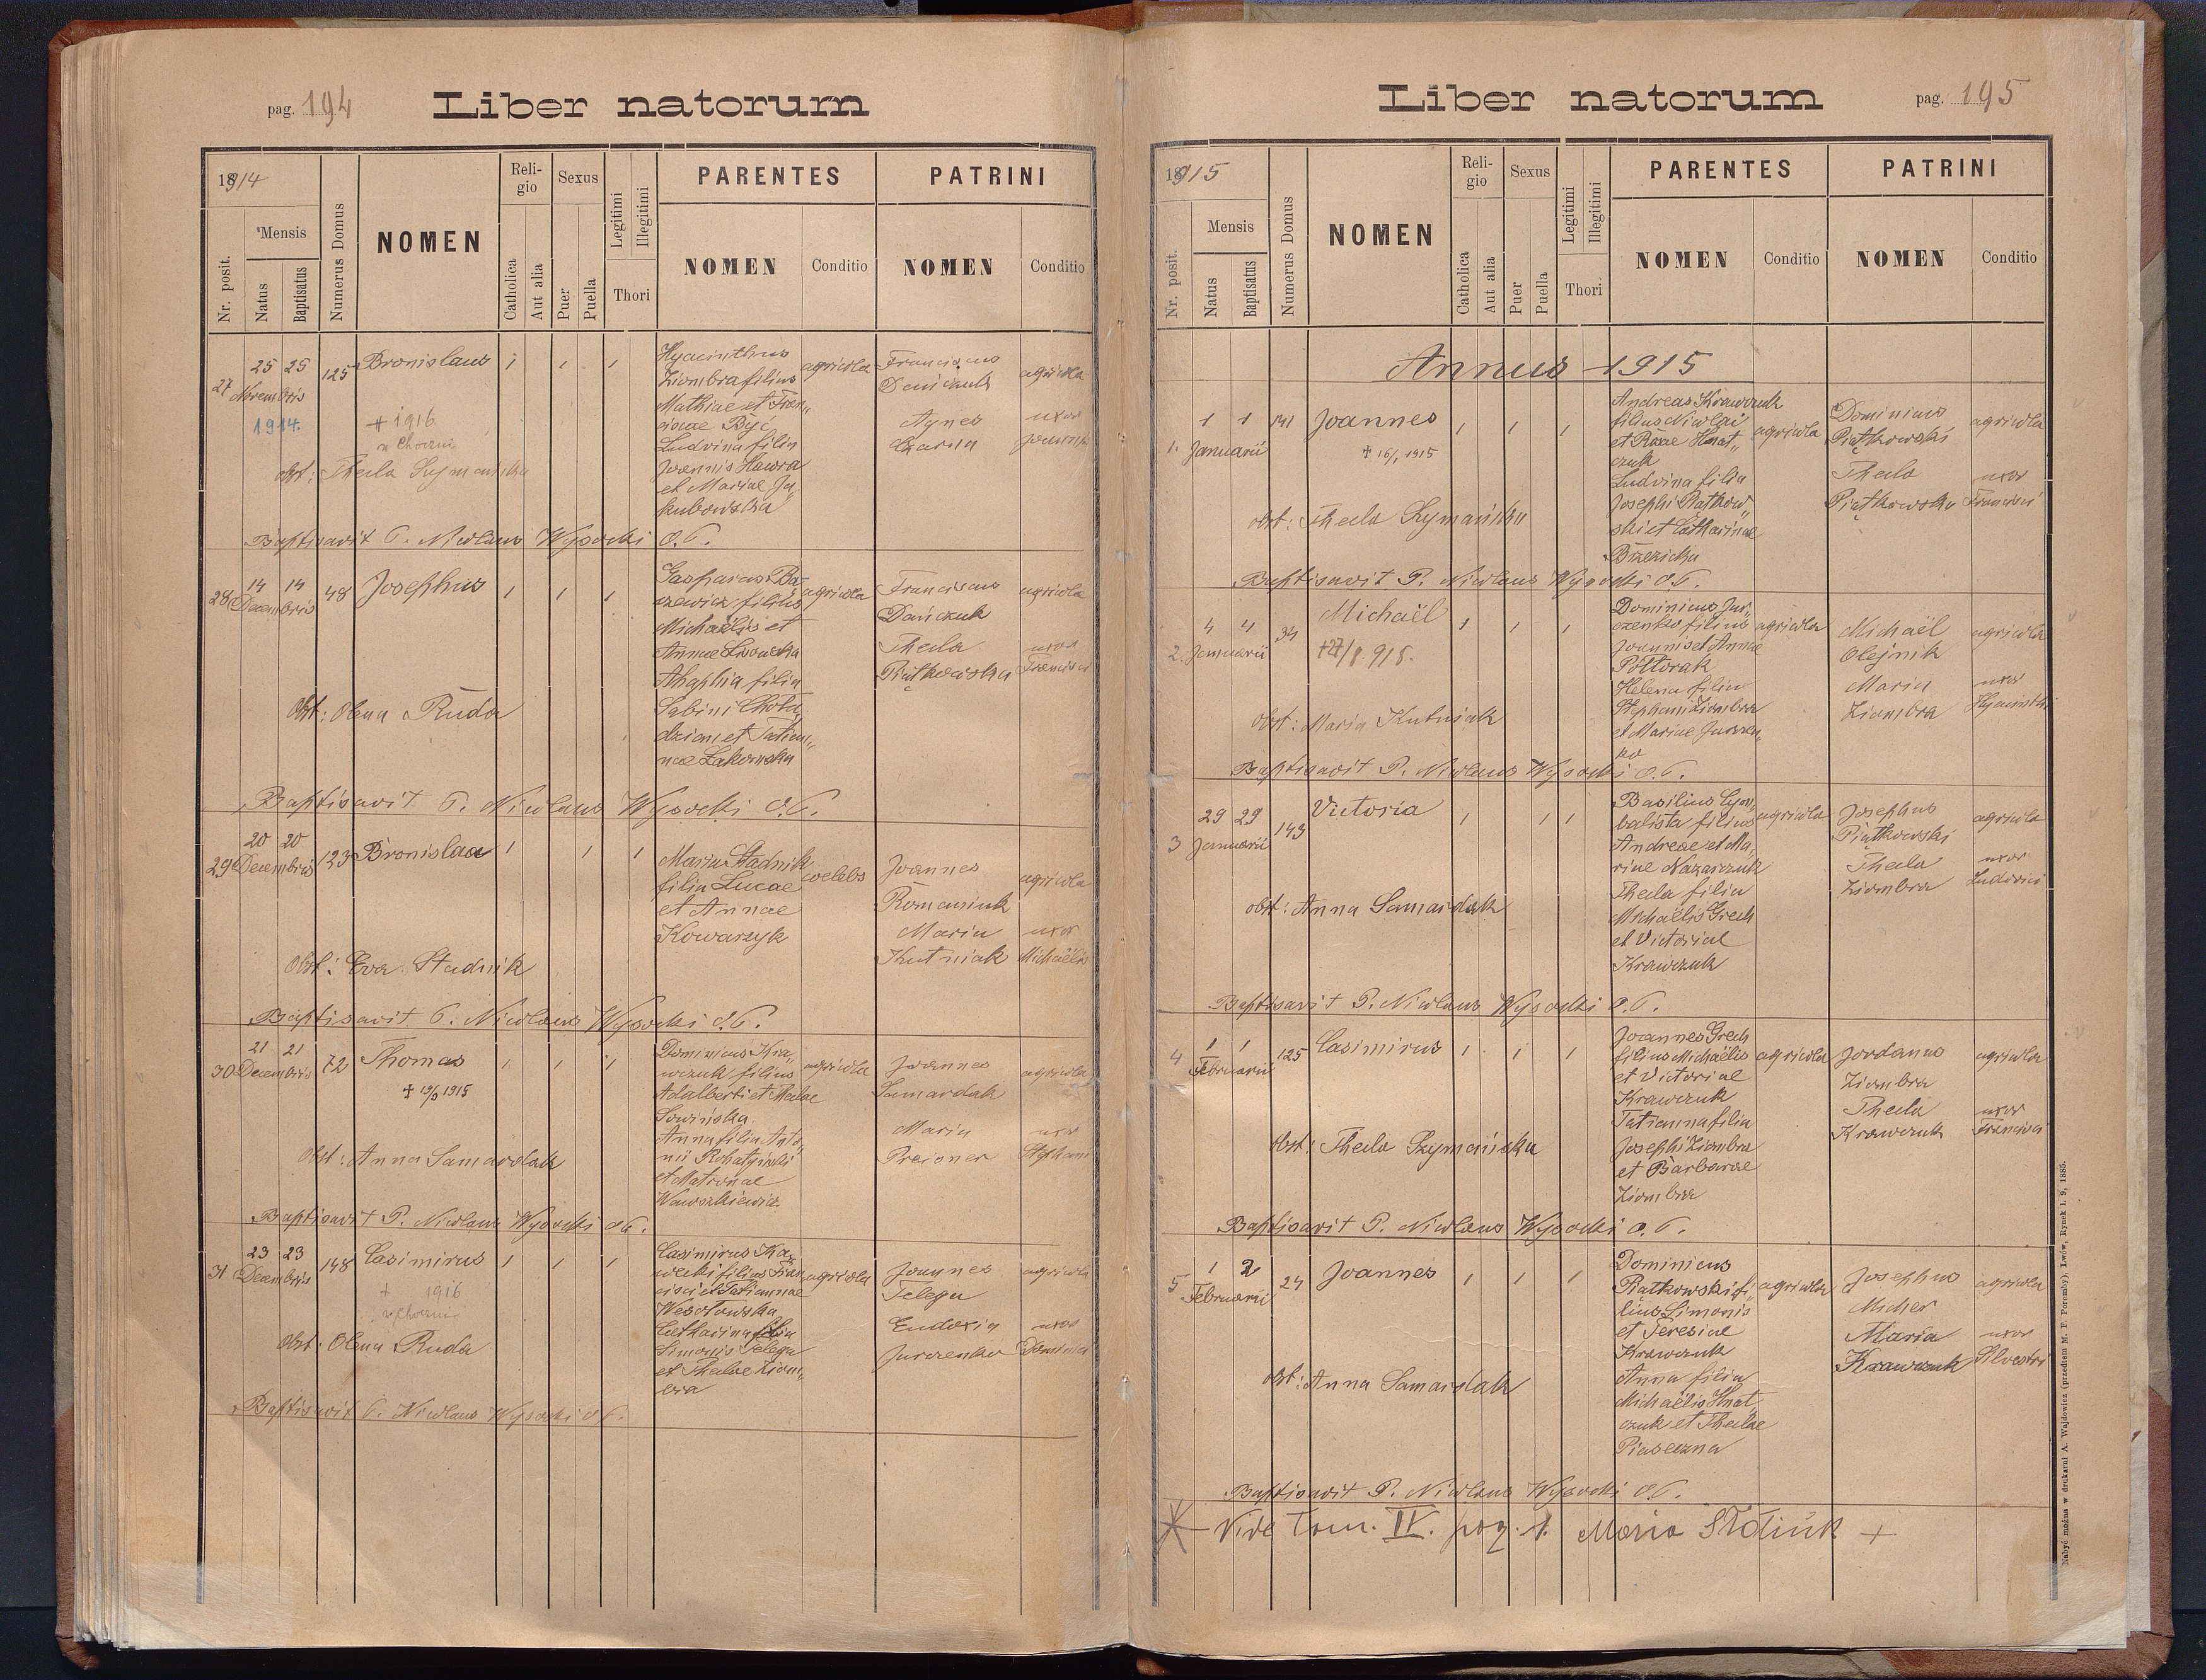 pag. 194
Liber natorum
1914
Nr. posit.
Mensis
Natus
Baptisatus
Numerus Domus
NOMEN
Religio
Catholica
Aut alia
Sexus
Puer
Puella
Legitimi
Illegitimi
Thori
PARENTES
NOMEN
Conditio
PATRINI
NOMEN
Conditio
27
25 25
Novembris
1914.
125
Bronislaus
1 1 1
+ 1916
obst: Thecla Szymańska
Hyacinthus
Ziombra filius
Mathiae et Fran„
ciscae Być
Ludvina filia
Joannis Hawra
et Mariae Ja„
kubowska
agricola
Franciscus
Dańczuk
agricola
Agnes
uxor
Baptisavit P. Nicolaus Wysocki O.P.
28
14 14
Decembris
48
Josephus
1 1 1
Obst: Olena Ruda
Gasparus Ba-
rzewicz filius
Michaëlis et
Annae Lisowska
Ahaphia filia
Sabini
et Tatian„
nae Łakomska
agricola
Franciscus
Dańczuk
agricola
Thecla
Piątkowska
uxor
Francisci
Baptisavit P. Nicolaus Wysocki O.P.
29
20 20
Decembris
123
Bronislaa
1 1 1
Obst: Eva Stadnik
Maria Stadnik
filia Lucae
et Annae
Kowarzyk
coelebs
Joannes
Romaniuk
agricola
Maria
Kutniak
uxor
Michaëlis
Baptisavit P. Nicolaus Wysocki O.P.
30
21 21
Decembris
72
Thomas
1 1 1
+ 19/9 1915
Obst: Anna Samardak
Dominicus Kra„
wczuk filius
Adalberti et Theclae
Sowińska
Anna filia Anto„
nii Rohatyński
et Matronae
Wawszkiewicz
agricola
Joannes
Samardak
agricola
Maria
Preisner
uxor
Stephani
Baptisavit P. Nicolaus Wysocki O.P.
31
23 23
Decembris
148
Casimirus
1 1 1
+ 1916
Obst: Olena Ruda
Casimirus Ka„
wecki filius Fran„
cisci et Tatiannae
Wesołowska
Catharina filia
Simonis Telega
et Theclae Ziom„
bra
agricola
Joannes
Telega
agricola
Eudoxia
Jurczenko
uxor
Dominici
Baptisavit P. Nicolaus Wysocki O.P.
Liber natorum
pag. 195
1915
Nr. posit.
Mensis
Natus
Baptisatus
Numerus Domus
NOMEN
Religio
Catholica
Aut alia
Sexus
Puer
Puella
Legitimi
Illegitimi
Thori
PARENTES
NOMEN
Conditio
PATRINI
NOMEN
Conditio
Annus 1915
1.
1 1
Januarii
141
Joannes
1 1 1
+ 16/1 1915
obst: Thecla Szymańska
Andreas Krawczuk
filius Nicolai
et Rosae Hnat„
czuk
Ludvina filia
Josephi Piątkow„
ski et Catharinae
Brzezicka
agricola
Dominicus
Piątkowski
agricola
Thecla
Piątkowska
uxor
Francisci
Baptisavit P. Nicolaus Wysocki O.P.
2.
4 4
Januarii
34
Michaël
1 1 1
obst: Maria Kutniak
Dominicus Jur„
czenko filius
Joannis et Annae
Półtorak
Helena filia
Stephani Ziombra
et Mariae Jurczen„
ko
agricola
Michaël
Olejnik
agricola
Maria
Ziombra
uxor
Hyacinthi
Baptisavit P. Nicolaus Wysocki O.P.
3
29 29
Januarii
143
Victoria
1 1 1
obst: Anna Samardak
Basilius Cym„
balista filius
Andreae et Ma„
riae Nazarczuk
Thecla filia
Michaëlis Grech
et Victoriae
Krawczuk
agricola
Josephus
Piątkowski
agricola
Thecla
Ziombra
uxor
Ludovici
Baptisavit P. Nicolaus Wysocki O.P.
4
1 1
Februarii
125
Casimirus
1 1 1
obst: Thecla Szymańska
Joannes Grech
filius Michaëlis
et Victoriae
Krawczuk
Tatianna filia
Josephi Ziombra
et Barbarae
Ziombra
agricola
Jordanus
Ziombra
agricola
Thecla
Krawczuk
uxor
Francisci
Baptisavit P. Nicolaus Wysocki O.P.
5
1 2
Februarii
24
Joannes
1 1 1
obst: Anna Samardak
Dominicus
Piątkowski fi„
lius Simonis
et Teresiae
Krawczuk
Anna filia
Michaëlis Hnat„
czuk et Theclae
Piaseczna
agricola
Josephus
Micher
agricola
Maria
Krawczuk
uxor
Silvestri
Baptisavit P. Nicolaus Wysocki O.P.
Vide Tom. IV. pag. 1. Maria +
Nabyć można w drukarni A. Wajdowicza (przedtem M. F. Poremby), Lwów, Rynek l. 9, 1885.